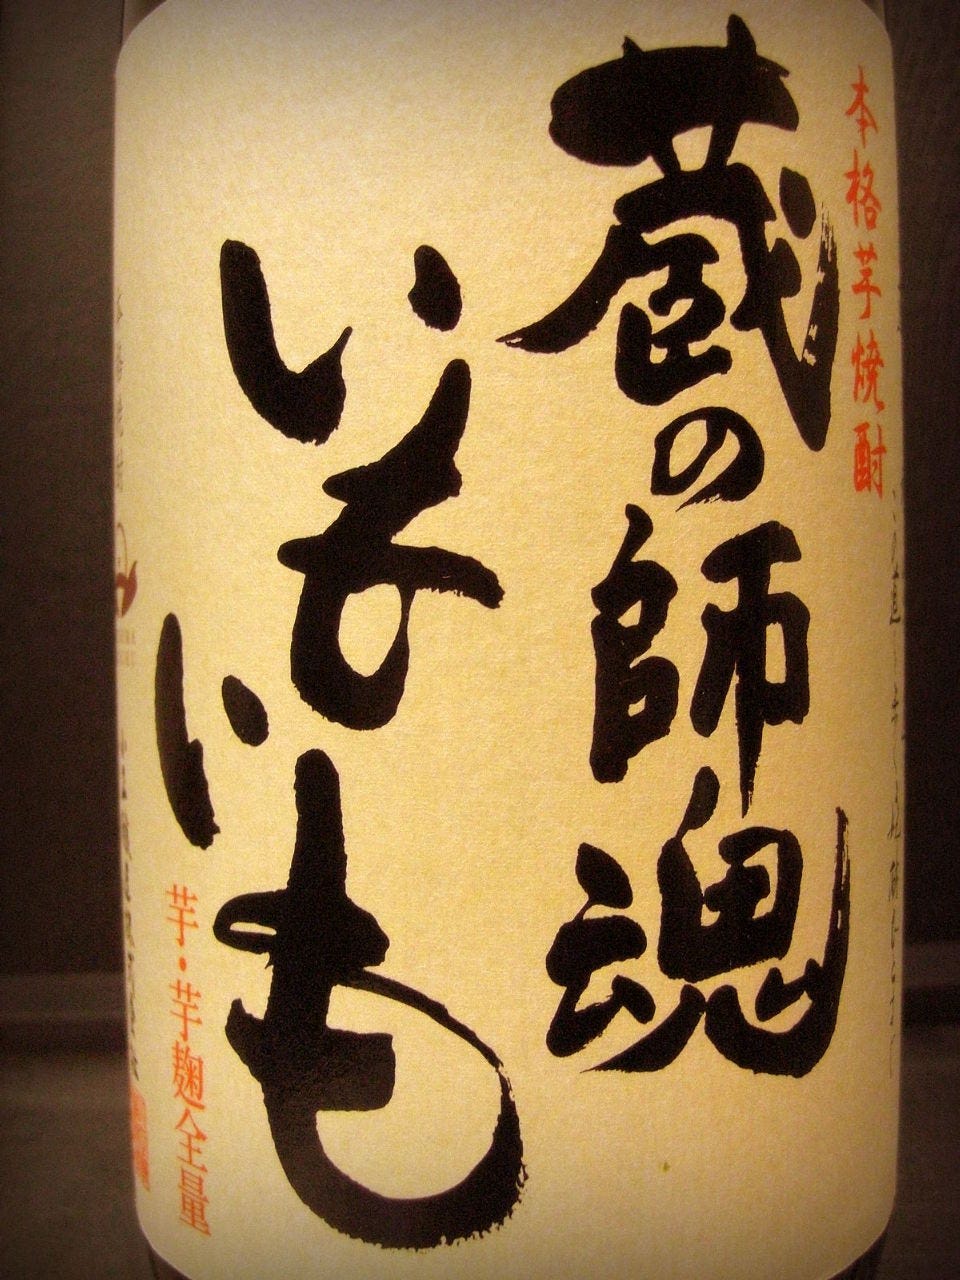 本格芋焼酎
蔵の師魂
いも
いも
芋・芋麹全量